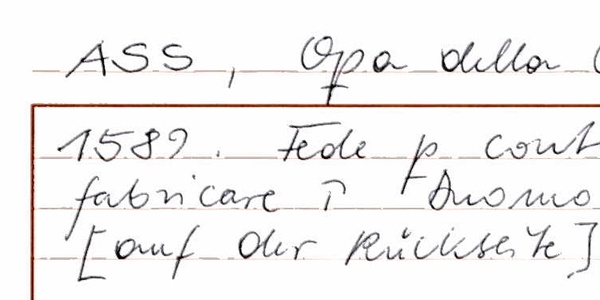 ASS, Opa della
1589. Fede p cont
fabricare ī Duomo
[auf der Rückseite]